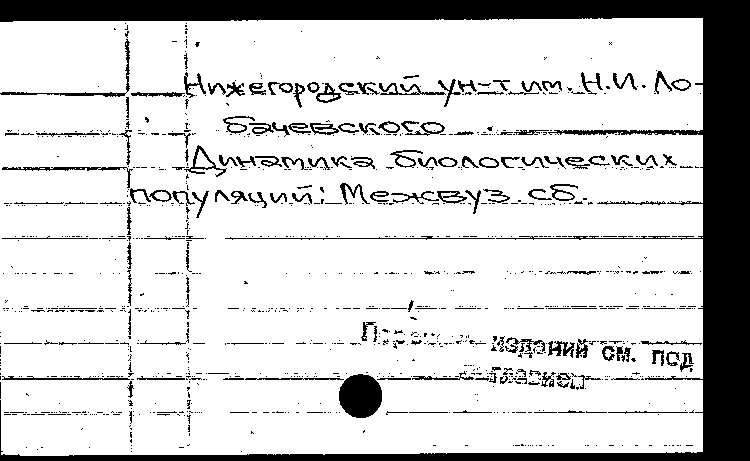 Нижегородский ун-т им. Н.И. Ло-
бачевского
Динамика биологических
популяций: Межвуз. сб.
изданий см. под